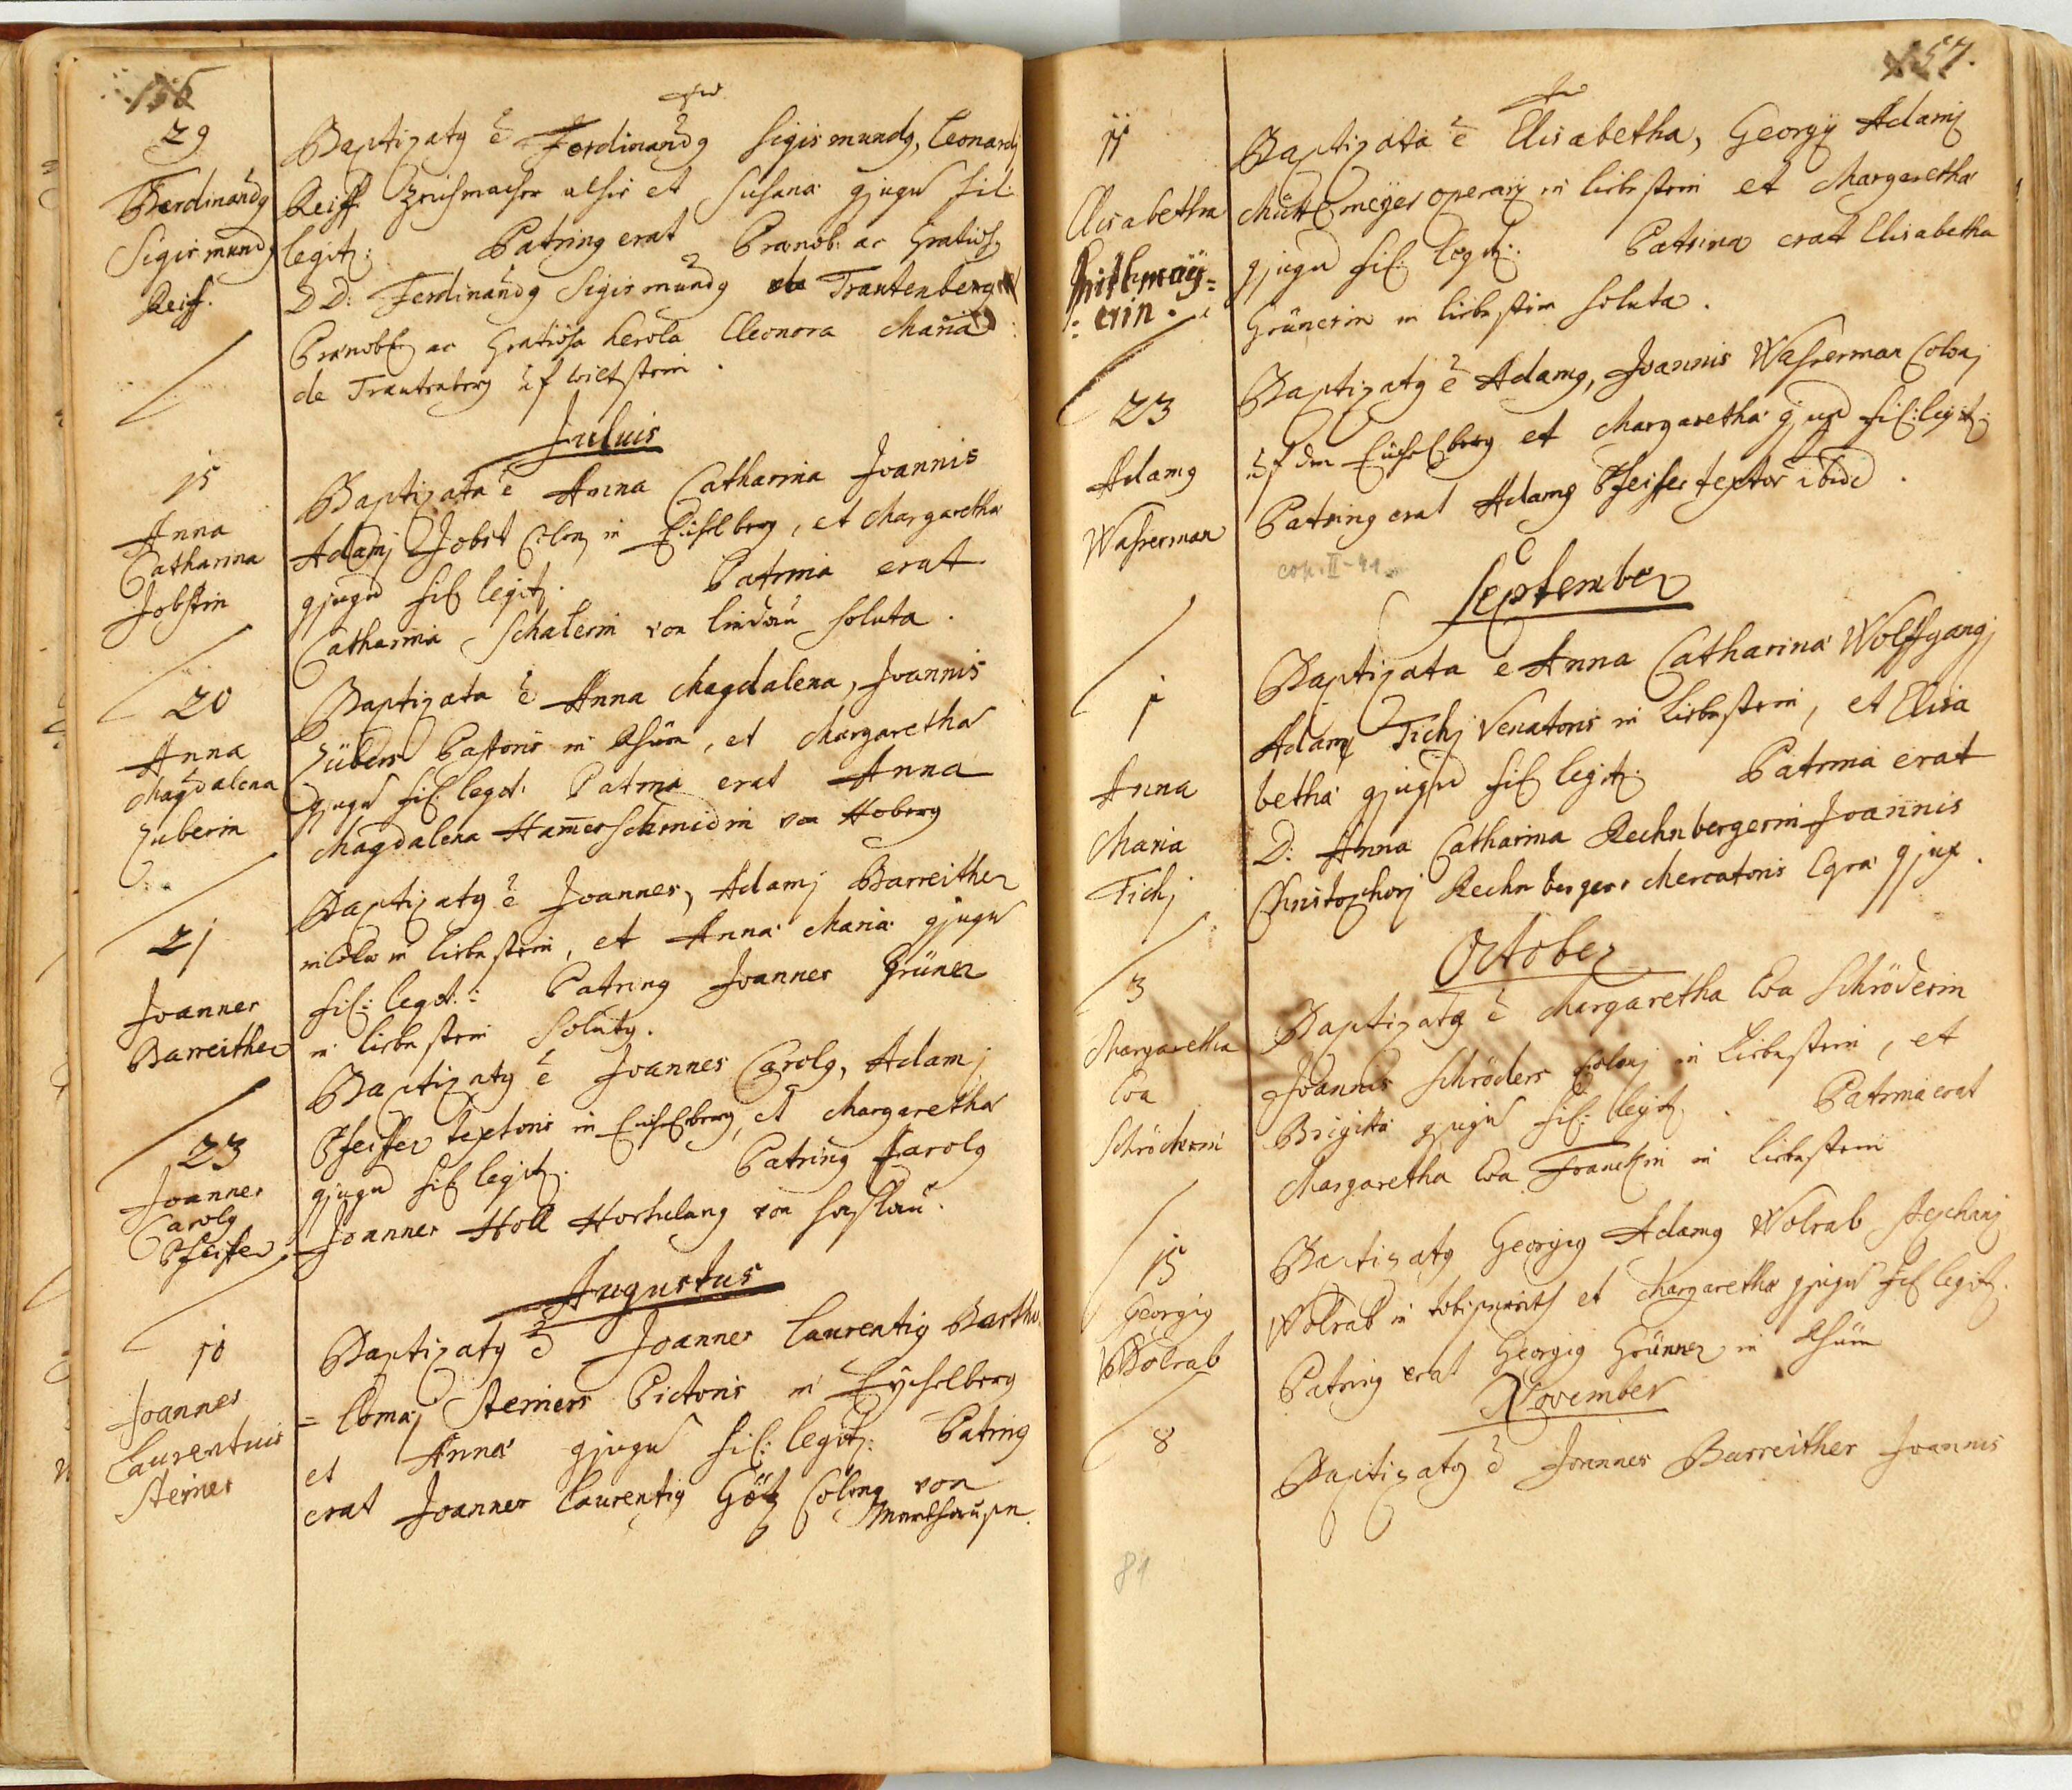 156
29
Ferdinandg
Sigismundg
Reiff.
Baptizatg ē Ferdinandg Sigismundg, Leonardj
Reiff alhir et Susana gjugu fil:
legit: Patring erat Prænob: ac Gratiosg
DD: Ferdinandg Sigismundg de Trautenberg
ac Gratiosa Herola Eleonora Maria
de Trautenberg uf Wiltstein.
Julius
15
Anna
Catharina
Jobstin
Baptizata ē Anna Catharina Joannis
Adamj Jobst Colonj in Eichelberg, et Margaretha
gjugu fil legit. Patrina erat
Catharina Schalerin von Lindau soluta.
20
Anna
Magdalena
Zuberin
Baptizata ē Anna Magdalena, Joannis
Zübers Pastoris in Rhüm, et Margaretha
gjugu fil: legit: Patrina erat Anna
Magdalena Hamerschmidin von Hoberg
21
Joannes
Barreither
Baptizatg ē Joannes, Adamj Barreither
incola in Liebenstein, et Anna Maria gjugu
fil: legit: Patring Joannes Grüner
in Liebenstein solutg.
23
Joannes
Carolg
Pfeiffer
Baptizatg ē Joannes Carolg, Adamj
Pfeiffer textoris in Eichelberg, et Margaretha
gjugu fil legit. Patring Carolg
Joannes Holl Hortulang von Haslau.
Augustus
10
Joannes
Laurentius
Steiner
Baptizatg ē Joannes Laurentig Bartho=
=lomaj Steiners Pictoris in Eychelberg
et Anna gjugu fil: legit: Patring
erat Joannes Laurentig Götz Colong von
Markhausen.
157.
11
Elisabetha
Hittmaÿ=
=erin.
Baptizata ē Elisabetha, Georgÿ Adamj
operarÿ in Liebenstein et Margaretha
gjugu fil: legit: Patrina erat Elisabetha
Grünerin in Liebenstein soluta.
23
Adamg
Wasserman
Baptizatg ē Adamg, Joannis Wasserman Colonj
uf den Eichelberg et Margaretha gjugu fil: legit:
Patring erat Adamg Pfeiffer textor ibid.
cop. II-41
September
1
Anna
Maria
Tichj
Baptizata e Anna Catharina Wolffgangj
Adamj Tichj Venatoris in Liebenstein, et Elisa
betha gjugu fil legit: Patrina erat
D: Anna Catharina Rechnbergerin Joannis
Christophorj Rechnbergers Mercatoris Egra gjux.
October
3
Margaretha
Eva
Schröderin
Baptizatg ē Margaretha Eva Schröderin
Joannis Schröders Colonj in Liebenstein, et
Brigitta gjugu fil: legit. Patrina erat
Margaretha Eva Franckin in Liebenstein
15
Georgig
Wolrab
Baptizatg Georgig Adamg Wolrab Stephanj
Wolrab in et Margaretha gjugu fil legit.
Patring erat Georgig Grünner in Rhüm
November
8
Baptizatg ē Joannes Barreither Joannis
81